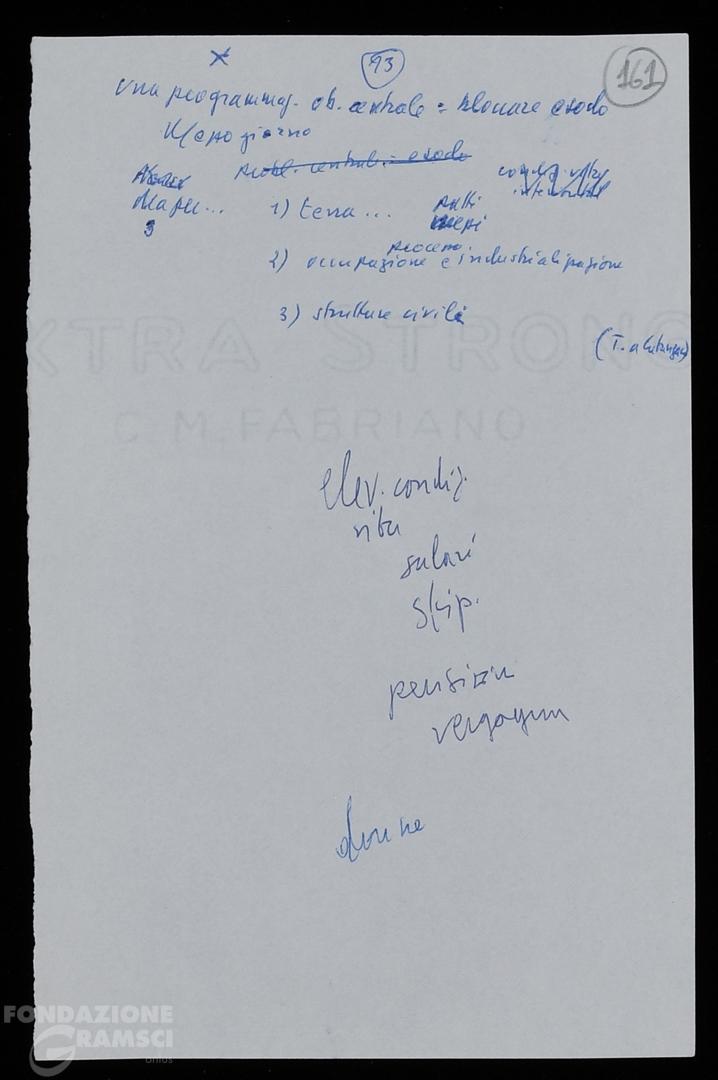 93
161
una programmaz. ob. centrale = bloccare esodo
Mezzogiorno
probl. centrali = esodo
condiz. vita
Mapu...
3
1) terra... patti
processo
2) occupazione e industrializzazione
3) strutture civili
XTRA STRONG
C.M.FABRIANO
elev. condiz.
vita
salari
stip.
pensioni
vergogna
donne
FONDAZIONE
GRAMSCI
onlus